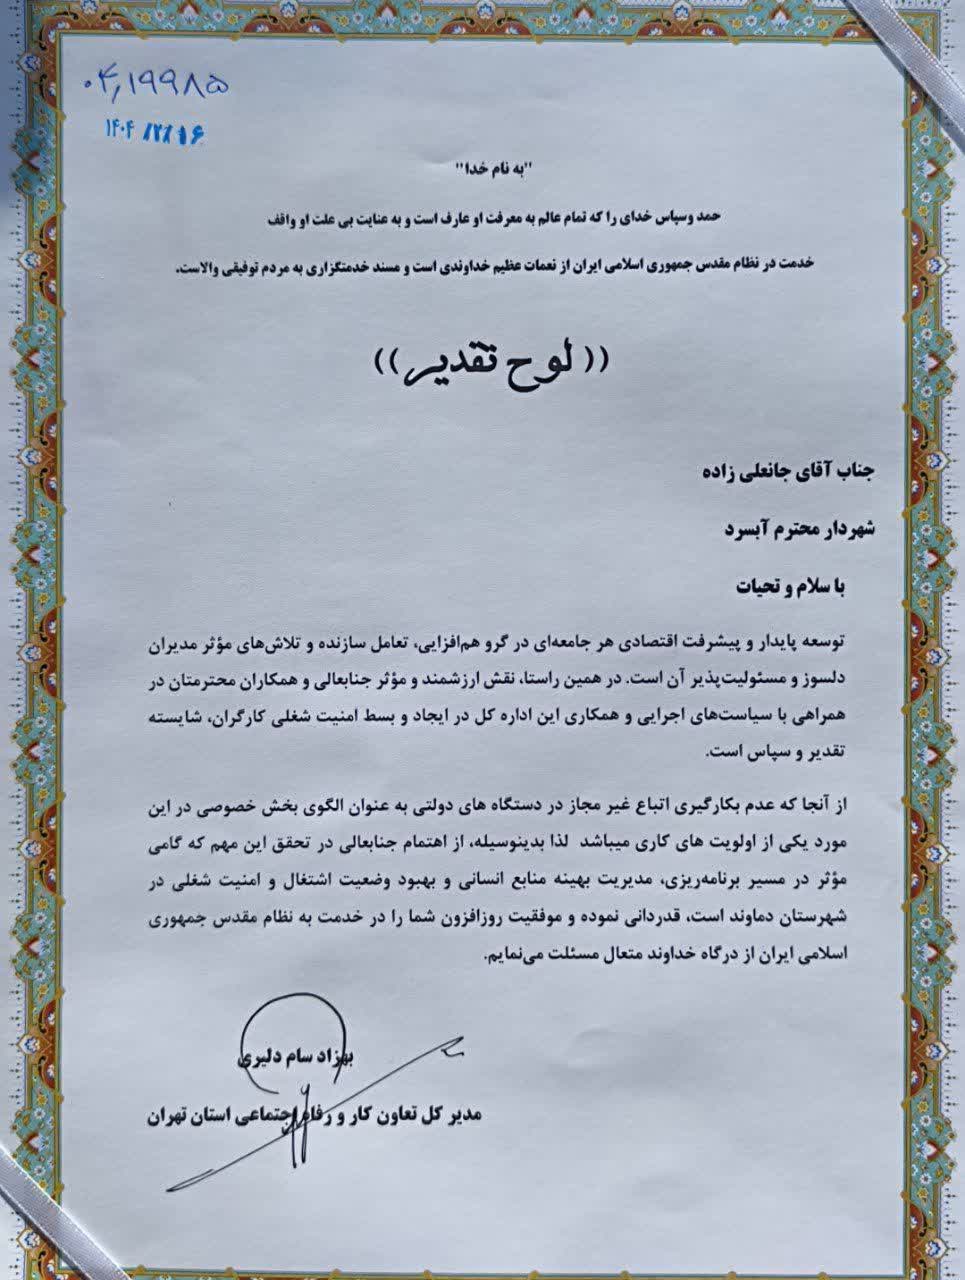 ۰۴,۱۹۹۸۵
۱۴۰۴ /۲/ ۱۶
"به نام خدا"
حمد وسپاس خدای را که تمام عالم به معرفت او عارف است و به عنایت بی علت او واقف
خدمت در نظام مقدس جمهوری اسلامی ایران از نعمات عظیم خداوندی است و مسند خدمتگزاری به مردم توفیقی والاست.
(( لوح تقدیر))
جناب آقای جانعلی زاده
شهردار محترم آبسرد
با سلام و تحیات
توسعه پایدار و پیشرفت اقتصادی هر جامعه‌ای در گرو هم‌افزایی، تعامل سازنده و تلاش‌های مؤثر مدیران
دلسوز و مسئولیت‌پذیر آن است. در همین راستا، نقش ارزشمند و مؤثر جنابعالی و همکاران محترمتان در
همراهی با سیاست‌های اجرایی و همکاری این اداره کل در ایجاد و بسط امنیت شغلی کارگران، شایسته
تقدیر و سپاس است.
از آنجا که عدم بکارگیری اتباع غیر مجاز در دستگاه های دولتی به عنوان الگوی بخش خصوصی در این
مورد یکی از اولویت های کاری میباشد لذا بدینوسیله، از اهتمام جنابعالی در تحقق این مهم که گامی
مؤثر در مسیر برنامه‌ریزی، مدیریت بهینه منابع انسانی و بهبود وضعیت اشتغال و امنیت شغلی در
شهرستان دماوند است، قدردانی نموده و موفقیت روزافزون شما را در خدمت به نظام مقدس جمهوری
اسلامی ایران از درگاه خداوند متعال مسئلت می‌نمایم.
بهزاد سام دلیری
مدیر کل تعاون کار و رفاه اجتماعی استان تهران